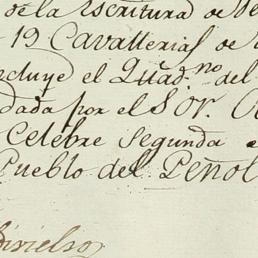 de la Escritura de Ve
19 Cavallerias de
cluye el Quad.no del
dada por el S.or
Celebre Segunda e
Pueblo del Peñol